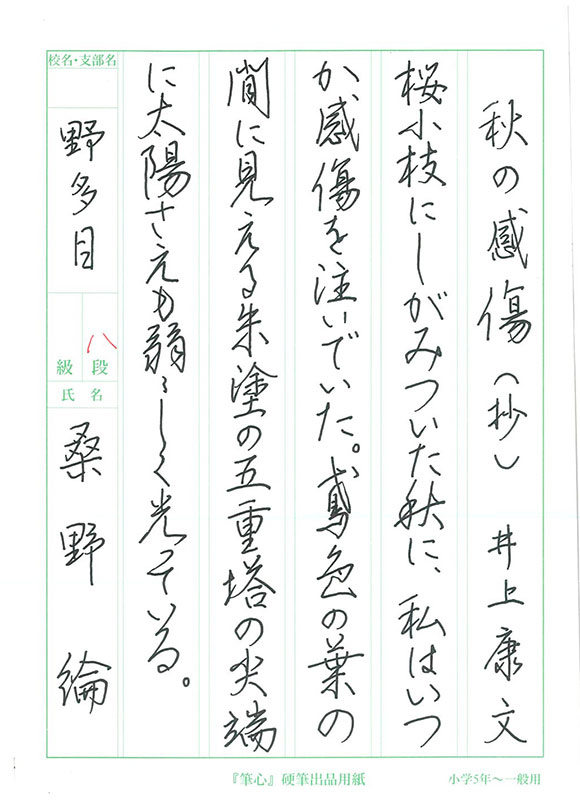 秋の感傷(抄) 井上康文
桜小枝にしがみついた秋に、私はいつ
か感傷を注いでいた。鳶色の葉の
間に見える朱塗の五重塔の尖端
に太陽さえも弱々しく光っている。
校名・支部名
野多目
八
段
級
氏名
桑野 綸
『筆心』硬筆出品用紙
小学5年~一般用